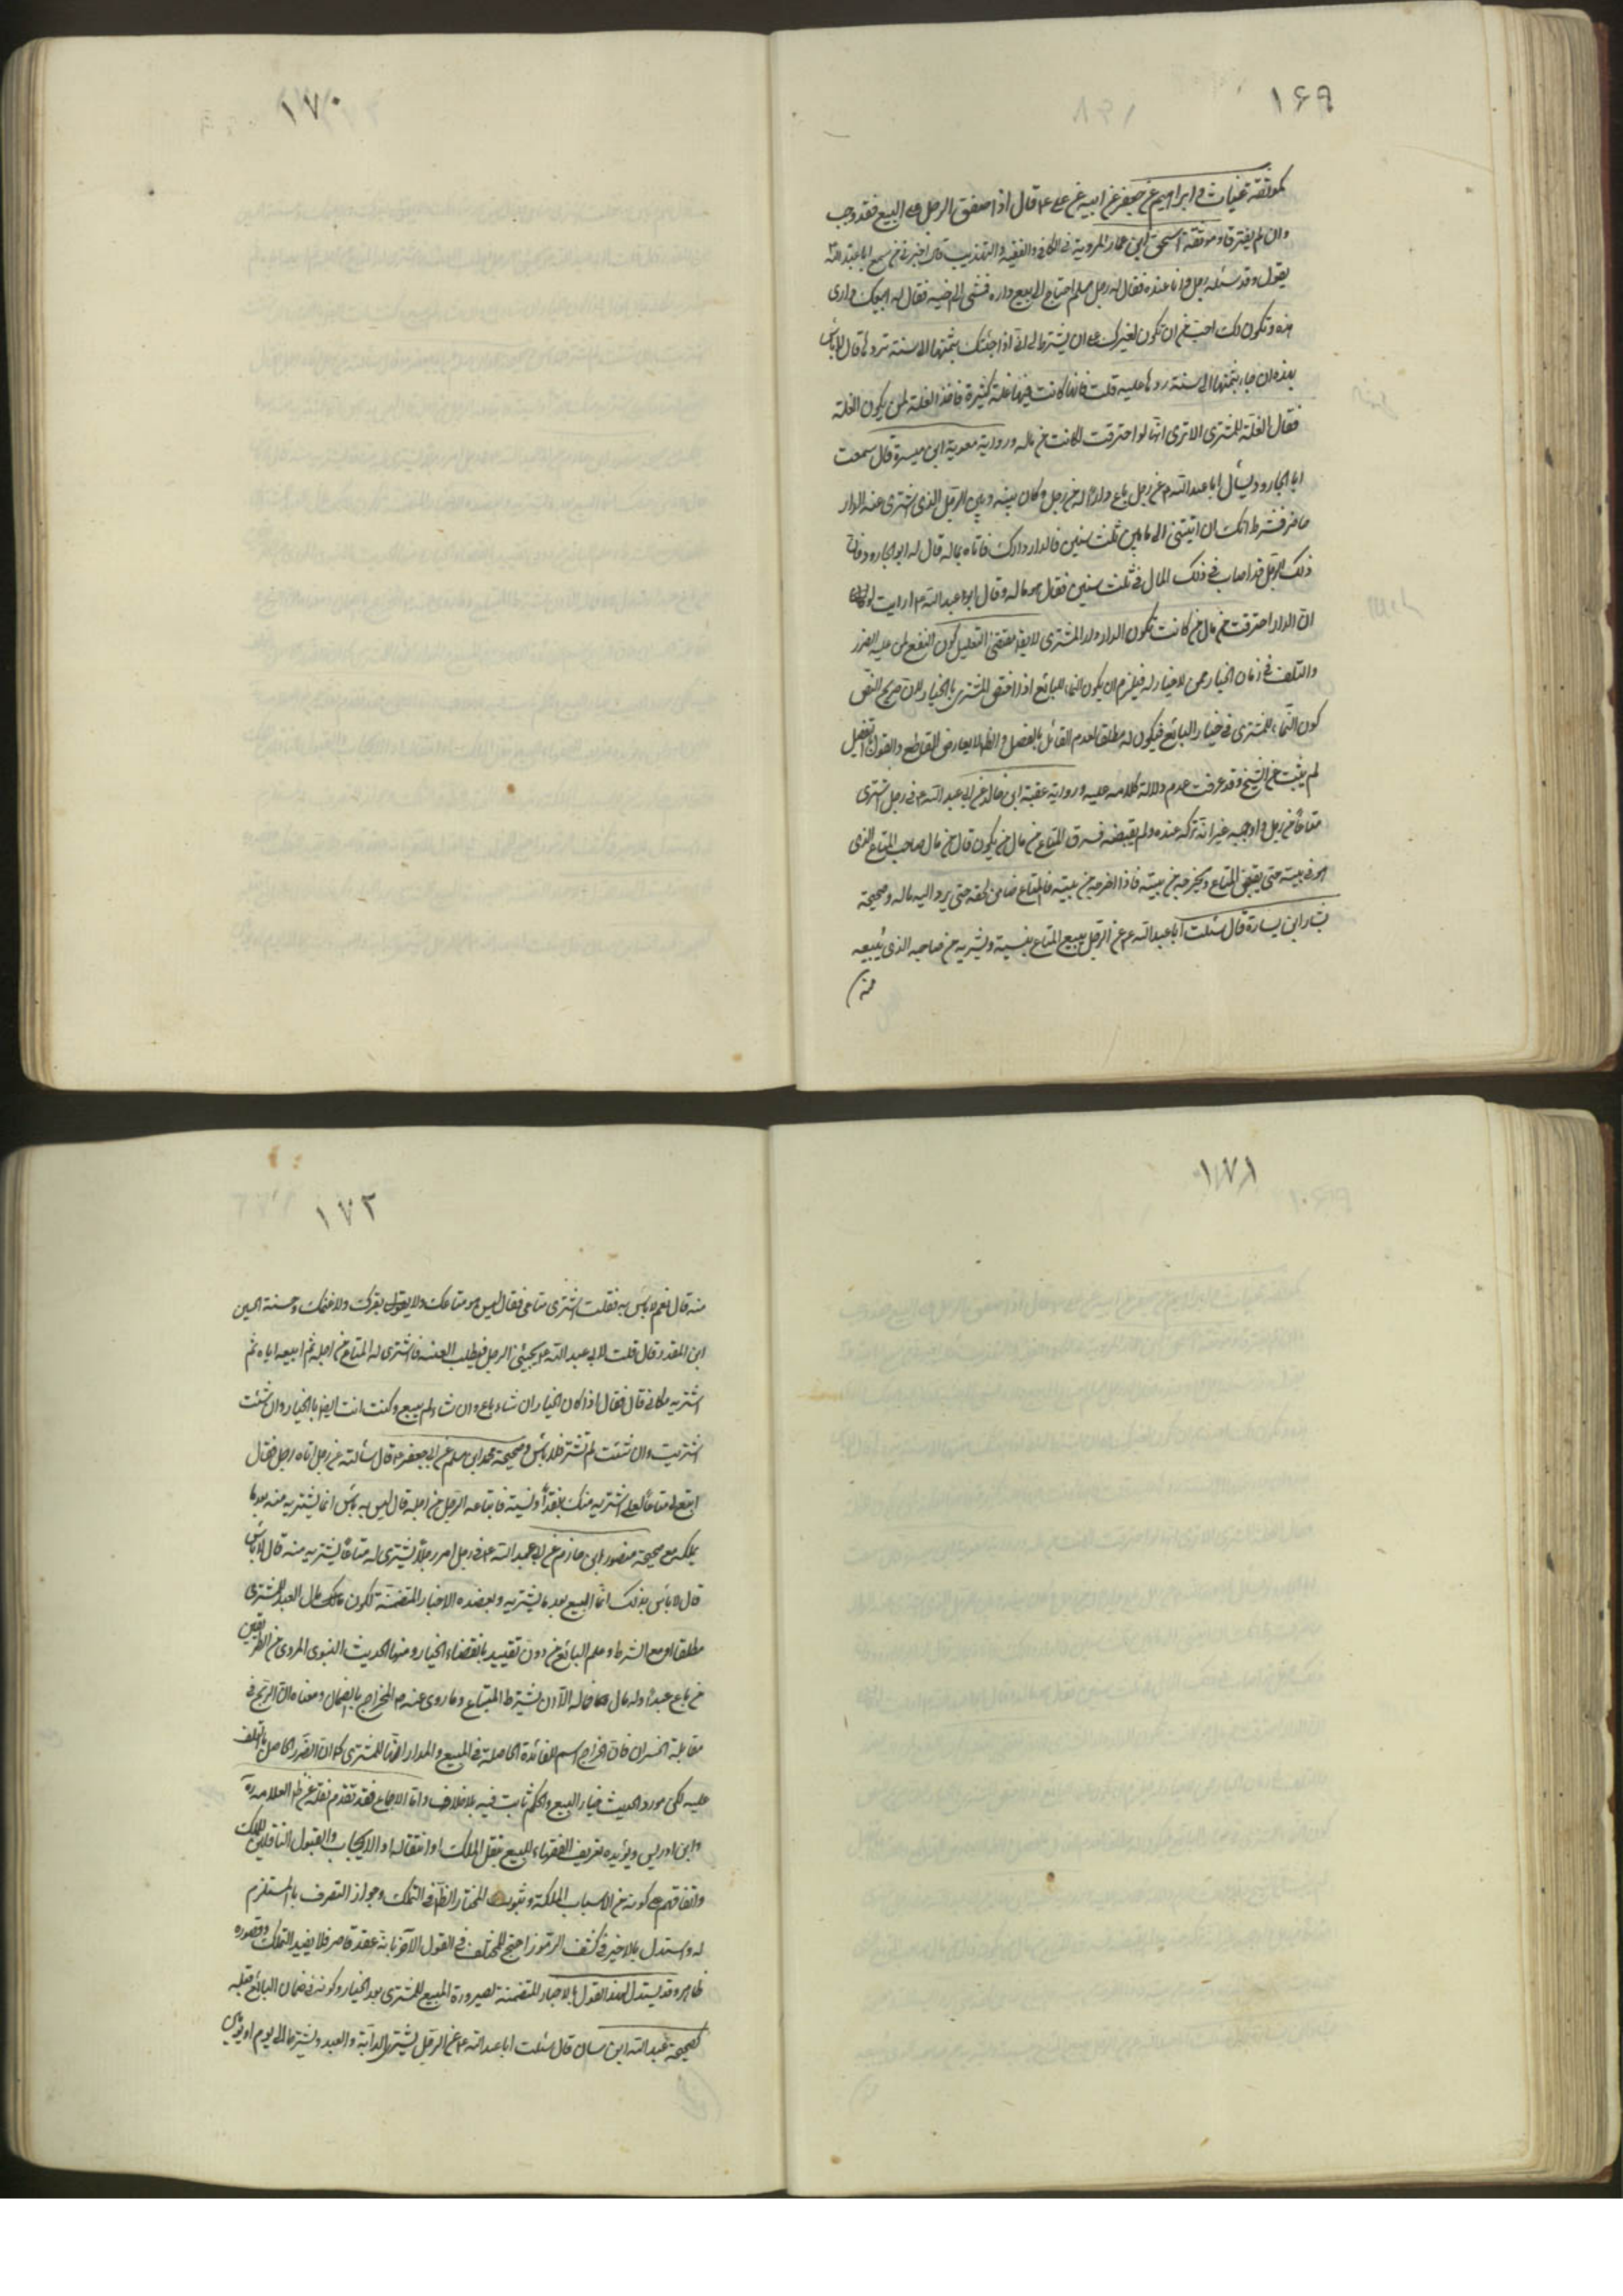 ١۶٩
كموثقة غياث بن ابراهيم عن جعفر عن ابيه عن علي ع قال اذا صفق الرجل على البيع فقد وجب
وان لم يفترقا وموثقة اسحق ابن عمار المروية في الكافي والفقيه والتهذيب قال اخبرني من سمع ابا عبد الله ع
يقول وقد سئله رجل وانا عنده فقال له رجل مسلم احتاج الى بيع داره فمشى الى اخيه فقال له ابيعك داري
هذه وتكون لك احب من ان تكون لغيرك على ان يشترط لي اني اذا جئتك بثمنها الى سنة تردها قال لا بأس
بهذا ان جاء بثمنها الى سنة ردها عليه قلت فانها كانت فيها غلة كثيرة فاخذ الغلة لمن يكون الغلة
فقال الغلة للمشتري الا ترى انها لو احترقت لكانت من ماله ورواية معوية ابن ميسرة قال سمعت
ابا الجارود يسأل ابا عبد الله ع عن رجل باع دارا له من رجل وكان بينه وبين الرجل الذي اشترى منه الدار
حاضر فشرط انك ان اتيتني الى ما بين ثلث سنين فالدار دارك فاتاه بماله قال له ابو الجارود فان
ذلك الرجل قد اصاب في ذلك المال في ثلث سنين فقال هو ماله وقال ابو عبد الله ع ارايت لو
ان الدار احترقت من مال من كانت تكون الدار دار المشتري لا يقال مقتضى التعليل كون النفع لمن عليه الضرر
والتلف في زمان الخيار ممن لا خيار له فيلزم ان يكون النماء للبائع اذا اختص المشتري بالخيار لان صريح النص
كون النماء للمشتري في خيار البائع فيكون له مطلقا لعدم القائل بالفصل والظاهر لا يعارض القاطع والقول بالتفصيل
لم يثبت عن الشيخ وقد عرفت عدم دلالة كلامه عليه ورواية عقبة ابن خالد عن ابي عبد الله ع في رجل اشترى
متاعا من رجل واوجبه غير انه تركه عنده ولم يقبضه فسرق المتاع من مال من يكون قال من مال صاحب المتاع الذي
هو في بيته حتى يقبض المتاع ويخرجه من بيته فاذا اخرجه من بيته فالمتاع ضامن لحقه حتى يرد اليه ماله وصحيحة
بشار ابن يسارة قال سئلت ابا عبد الله ع عن الرجل يبيع المتاع بنسية ويشتريه من صاحبه الذي يبيعه
منه
١٧٠
١٧١
١٧٢
منه قال نعم لا بأس به فقلت اشتري متاعي فقال ليس هو متاعك ولا بقرك ولا غنمك وحسنة الحسين
ابن المنذر قال قلت لابي عبد الله ع يجيئني الرجل فيطلب العينة فاشترى له المتاع من اجله ثم ابيعه اياه ثم
اشتريه مكاني قال فقال اذا كان الخيار ان شاء باع وان شاء لم يبيع وكنت انت ايضا بالخيار وان شئت
اشتريت وان شئت لم تشتر فلا بأس وصحيحة محمد ابن مسلم عن ابي جعفر ع قال سألته عن رجل اتاه رجل فقال
ابتع لي متاعا لعلي اشتريه منك بنقد او نسية فابتاعه الرجل من اجله قال ليس به بأس انما يشتريه منه بعد ما
يملكه مع صحيحة منصور ابن حازم عن ابي عبد الله ع في رجل امر رجلا يشتري له متاعا فيشتريه منه قال لا بأس
قال لا بأس بذلك انما البيع بعد ما يشتريه ويعضده الاخبار المتضمنة لكون مال العبد للمشتري
مطلقا او مع الشرط وعلم البائع من دون تقييد بانقضاء الخيار ومنها الحديث النبوي المروي من الطريقين
من باع عبدا وله مال فماله الا ان يشترط المبتاع وما روى عنه ص الخراج بالضمان ومعناه ان الربح في
مقابلة الخسران فان الخراج اسم للفائدة الحاصلة في المبيع والمراد انها للمشتري كما ان الضرر الحاصل بالتلف
عليه لكن مورد الحديث خيار البيع والحكم ثابت فيه بلا خلاف واما الاجماع فقد تقدم نقله عن ظ العلامه ره
وابن ادريس ويؤيده تعريف الفقهاء للبيع بنقل الملك او انتقاله او الايجاب والقبول الناقلين للملك
واتفاقهم على كونه من الاسباب المملكة وثبوت الخيار الظ في التملك وجواز التصرف بالمستلزم
له واستدل بالاخير في كشف الرموز احتج المختلف في القول الاخر بانه عقد قاصر فلا يفيد التملك وقصوره
ظاهر وقد يستدل لهذا القول بالاخبار المتضمنة لصيرورة المبيع للمشتري بعد الخيار وكونه في ضمان البائع قبله
كصحيحة عبد الله ابن سنان قال سئلت ابا عبد الله ع عن الرجل يشتري الدابة والعبد ويشترط الى يوم او يومين